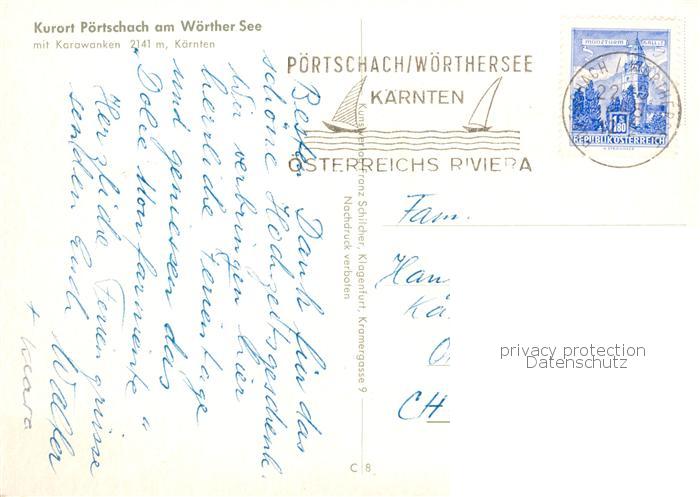 Kurort Pörtschach am Wörther See
mit Karawanken 2141 m, Kärnten
PÖRTSCHACH/WÖRTHERSEE
KÄRNTEN
ÖSTERREICHS RIVIERA
MÜNZTURM HALL I. T.
S 1.80
REPUBLIK ÖSTERREICH
Besten Dank für das
schöne Hochzeitsgeschenk.
Wir verbringen hier
herrliche Ferientage
und geniessen das
"Dolce far niente"
Herzliche Feriengrüsse
senden Euch Walter
+ Klara
Kunstverlag Franz Schilcher, Klagenfurt, Kramergasse 9
Nachdruck verboten
Fam.
CH
privacy protection
Datenschutz
C 8